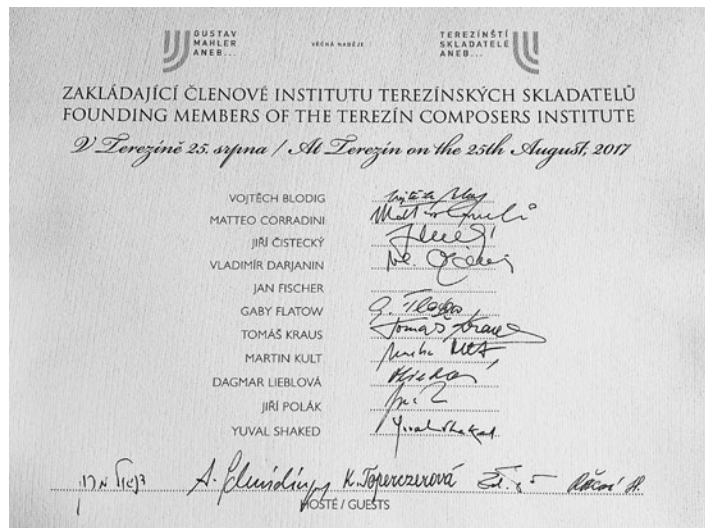 GUSTAV
MAHLER
ANEB...
VĚČNÁ NADĚJE
TEREZÍNŠTÍ
SKLADATELÉ
ANEB...
ZAKLÁDAJÍCÍ ČLENOVÉ INSTITUTU TEREZÍNSKÝCH SKLADATELŮ
FOUNDING MEMBERS OF THE TEREZÍN COMPOSERS INSTITUTE
V Terezíně 25. srpna / At Terezín on the 25th August, 2017
VOJTĚCH BLODIG
MATTEO CORRADINI
JIŘÍ ČISTECKÝ
VLADIMÍR DARJANIN
JAN FISCHER
GABY FLATOW
TOMÁŠ KRAUS Tomáš Kraus
MARTIN KULT
DAGMAR LIEBLOVÁ
JIŘÍ POLÁK
YUVAL SHAKED Yuval Shaked
K. Toperczerová
HOSTÉ / GUESTS